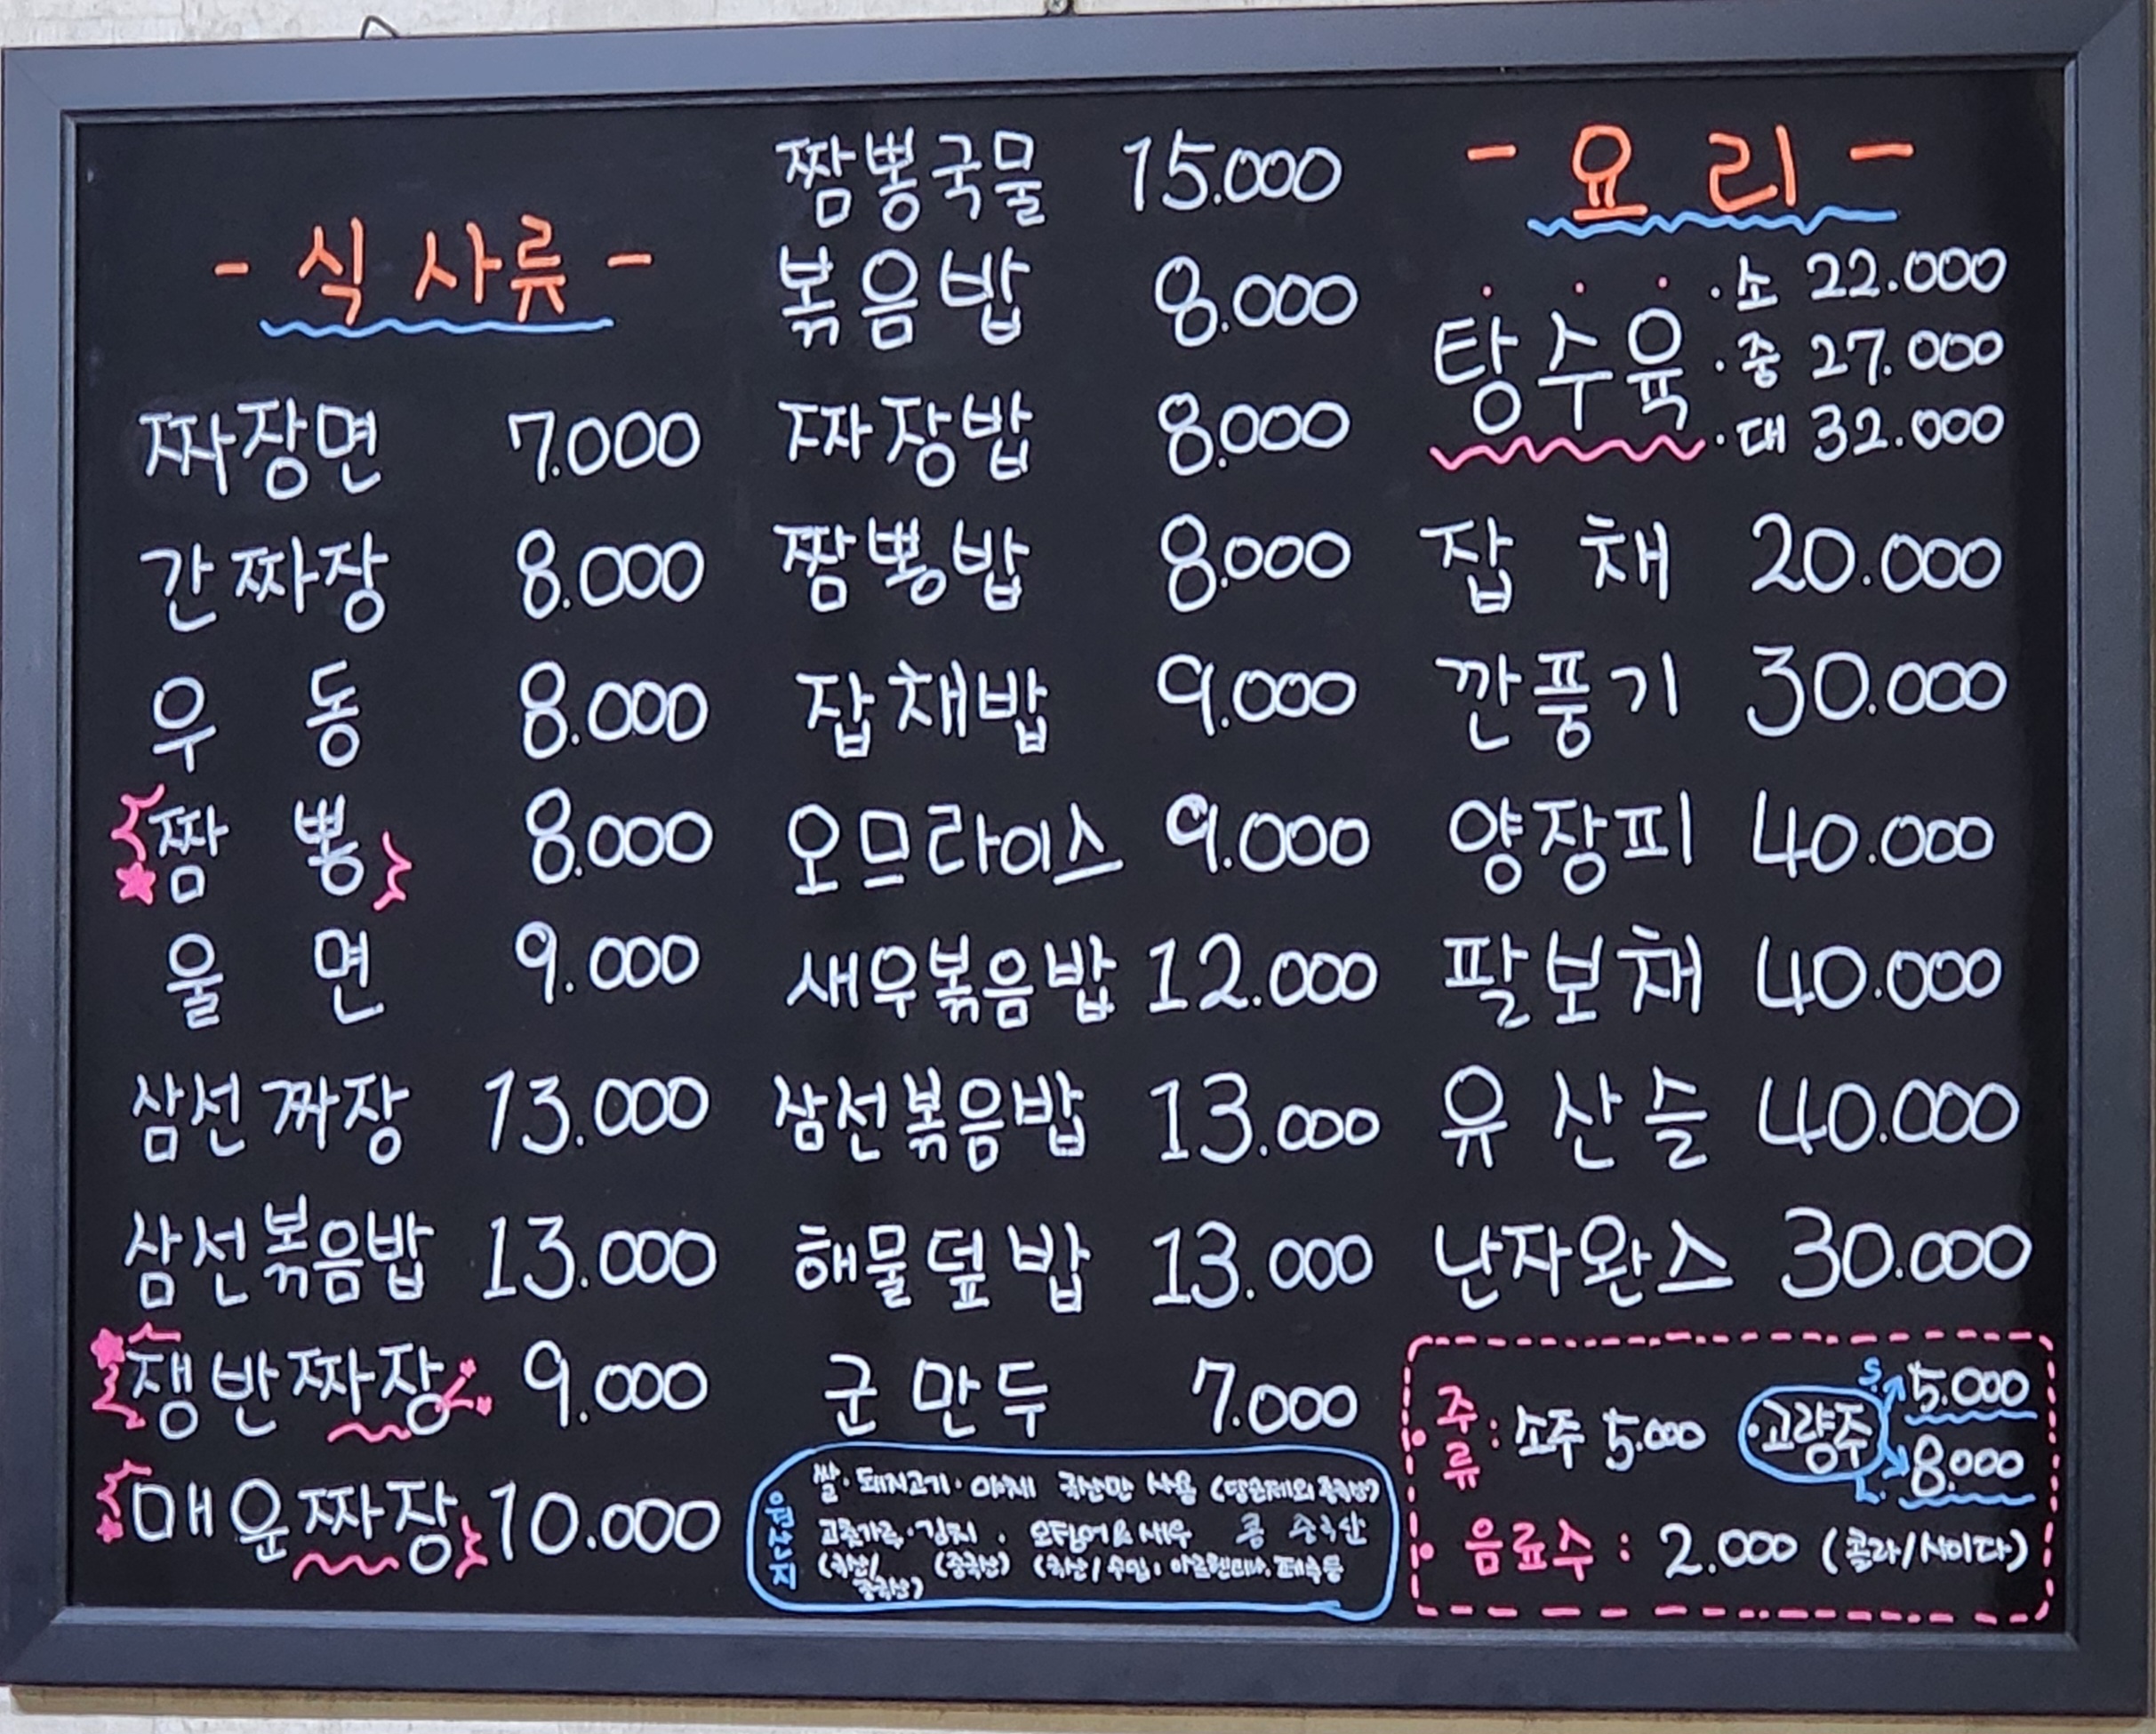 - 식사류 -
짜장면 7.000
간짜장 8.000
우동 8.000
짬뽕 8.000
울면 9.000
삼선짜장 13.000
삼선볶음밥 13.000
쟁반짜장 9.000
매운짜장 10.000
짬뽕국물 15.000
볶음밥 8.000
짜장밥 8.000
짬뽕밥 8.000
잡채밥 9.000
오므라이스 9.000
새우볶음밥 12.000
삼선볶음밥 13.000
해물덮밥 13.000
군만두 7.000
원산지
쌀·돼지고기·야채 국산만 사용 (당근제외 중국산)
고춧가루·김치 · 오징어&새우 콩 중국산
(국산/중국산) (중국산) (국산/수입: 아르헨티나, 페루등
- 요리 -
탕수육
·소 22.000
·중 27.000
·대 32.000
잡채 20.000
깐풍기 30.000
양장피 40.000
팔보채 40.000
유산슬 40.000
난자완스 30.000
주류: 소주 5.000 ·고량주 S. 5.000
L. 8.000
음료수: 2.000 (콜라/사이다)